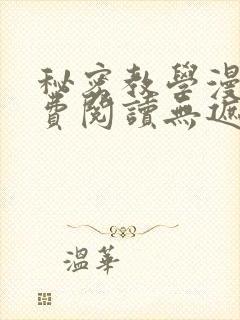 秘密教學漫
費閱讀無遮
溫華